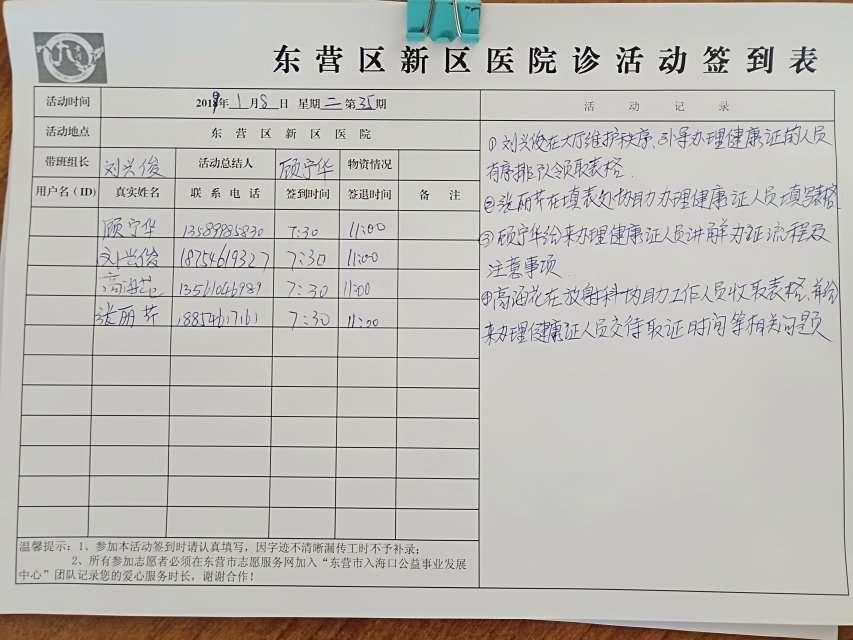 东营区新区医院诊活动签到表
活动时间 2019年1月8日 星期二 第35期
活动地点 东营区新区医院
带班组长 刘兴俊 活动总结人 顾宁华 物资情况
用户名(ID) 真实姓名 联系电话 签到时间 签退时间 备注
顾宁华 13589985830 7:30 11:00
刘兴俊 18754619327 7:30 11:00
高海花 13561046989 7:30 11:00
张丽芹 18854617161 7:30 11:00
温馨提示:1、参加本活动签到时请认真填写,因字迹不清晰漏传工时不予补录;
2、所有参加志愿者必须在东营市志愿服务网加入“东营市入海口公益事业发展
中心”团队记录您的爱心服务时长,谢谢合作!
活动记录
①刘兴俊在大厅维护秩序、引导办理健康证的人员
有序排队领取表格.
②张丽芹在填表处协助办理健康证人员填写表格.
③顾宁华给来办理健康证人员讲解办证流程及
注意事项.
④高海花在放射科协助工作人员收取表格,并给
来办理健康证人员交待取证时间等相关问题